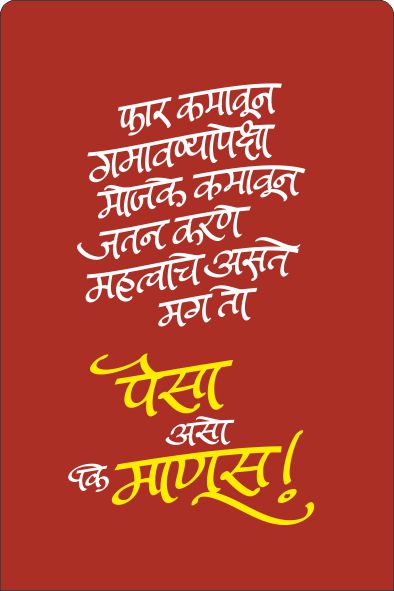 फार कमावून
गमावण्यापेक्षा
मोजके कमावून
जतन करणे
महत्वाचे असते
मग तो
पैसा
असो
कि माणूस!